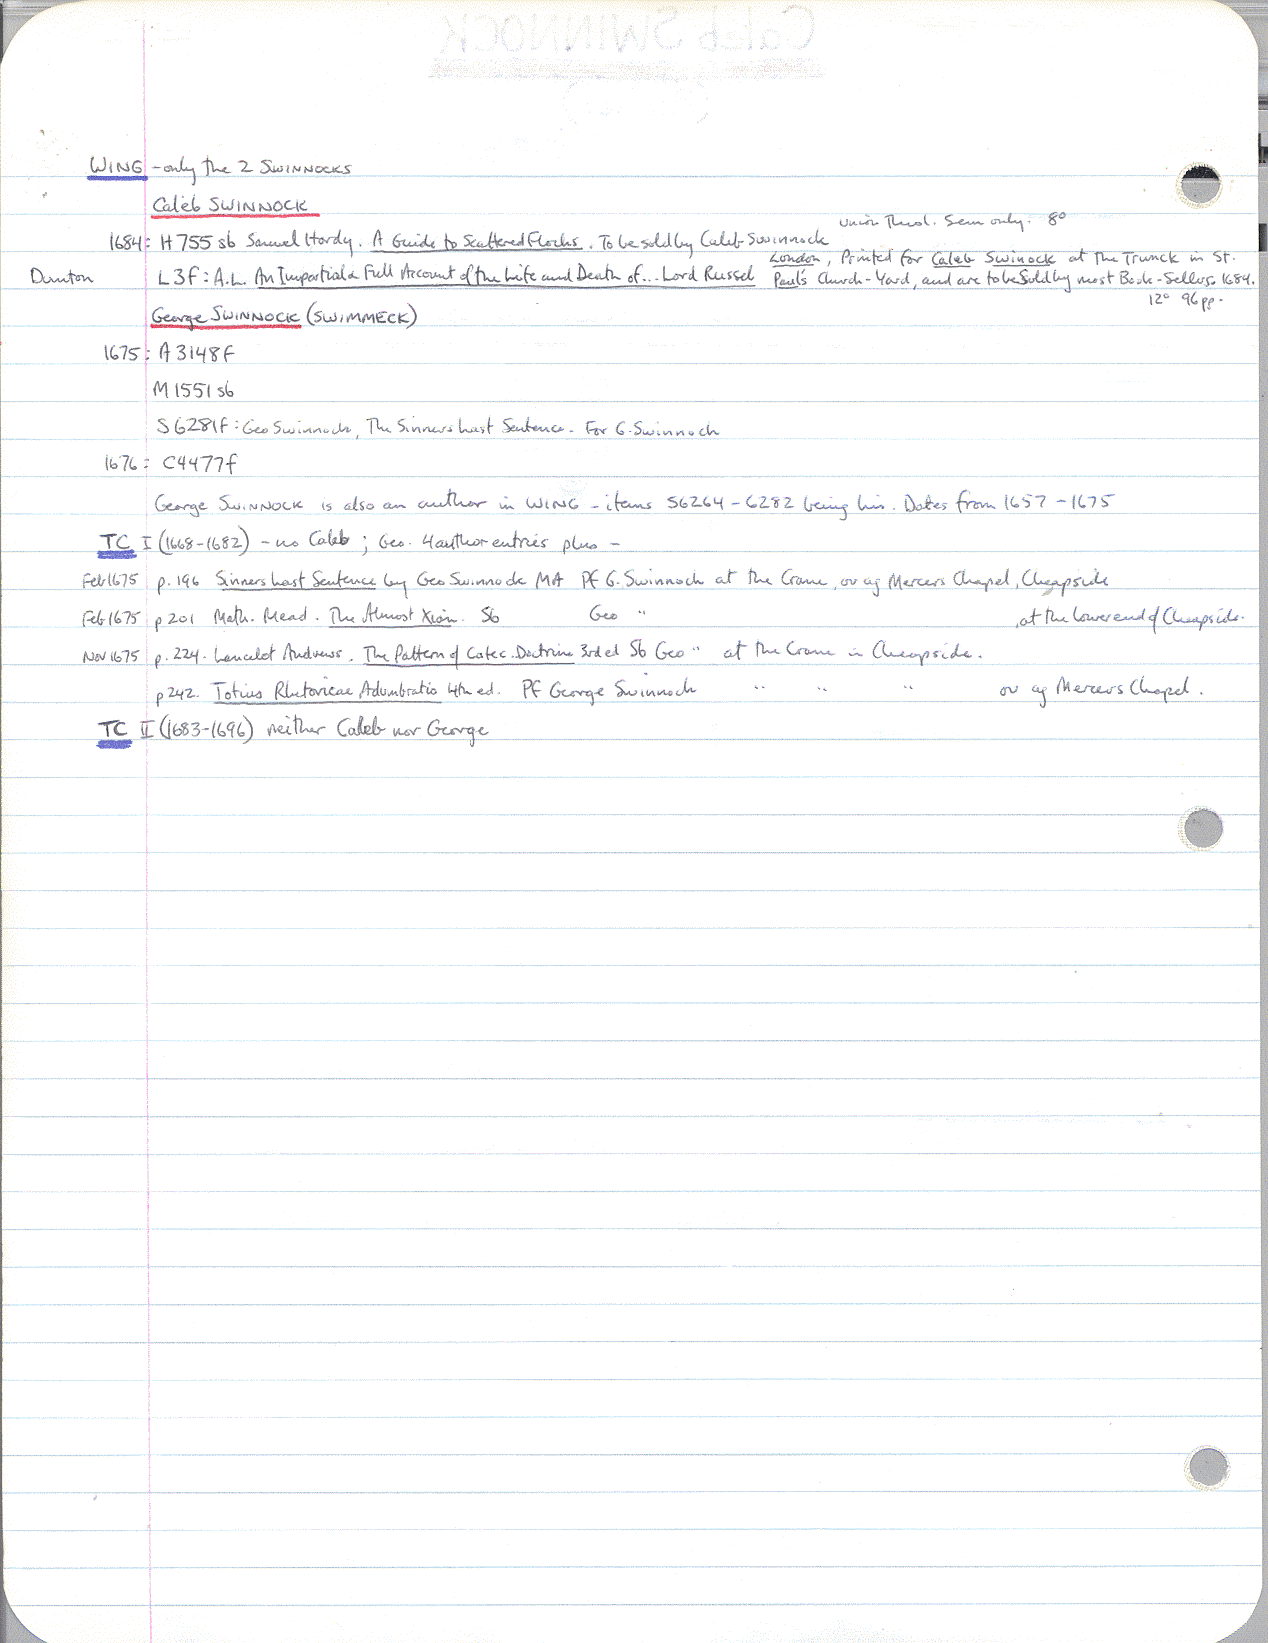 WING - only the 2 SWINNOCKS
Caleb SWINNOCK
Union Theol. Sem only. 8º
1684: H755 sb Samuel Hardy. A Guide to Scattered Flocks. To be sold by Caleb Swinnock
London, Printed for Caleb Swinock at the Trunck in St.
Dunton L3f: A.L. An Impartial & Full Account of the Life and Death of... Lord Russel Paul's Church-Yard, and are to be Sold by most Book-Sellers. 1684.
12º 96pp.
George SWINNOCK (SWIMMECK)
1675: A3148f
M1551 sb
S6281f: Geo Swinnock, The Sinners Last Sentence. For G. Swinnock
1676: C4477f
George SWINNOCK is also an author in WING - items S6264-6282 being his. Dates from 1657-1675
TC I (1668-1682) - no Caleb; Geo. 4 author entries plus -
Feb 1675 p.196 Sinners Last Sentence by Geo Swinnock MA PF G. Swinnock at the Crane, ov ag Mercers Chapel, Cheapside
Feb 1675 p201 Math. Mead. The Almost Xian. Sb Geo " , at the lower end of Cheapside.
Nov 1675 p.224. Lancelot Andrews. The Pattern of Catec. Doctrine 3rd ed Sb Geo " at the Crane in Cheapside.
p242. Totius Rhetoricae Adumbratio 4th ed. PF George Swinnock " " " ov ag Mercers Chapel.
TC II (1683-1696) neither Caleb nor George